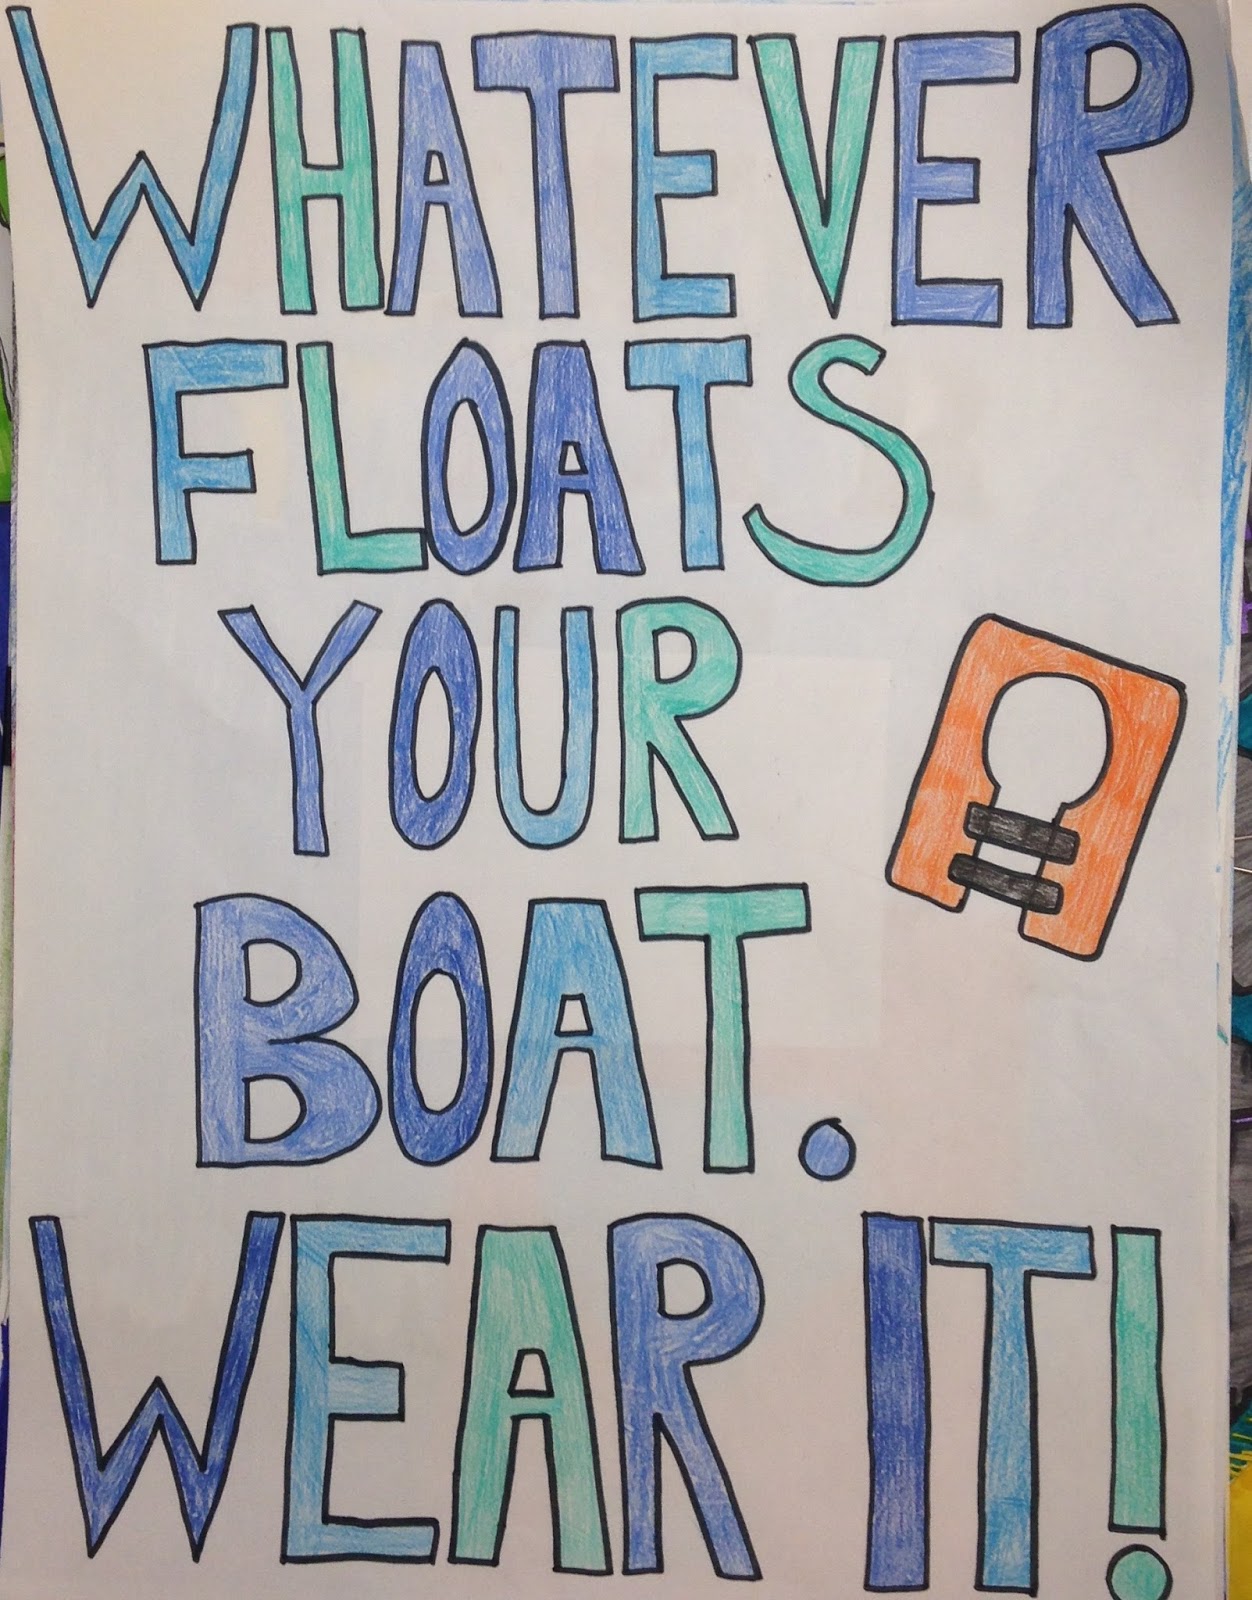 WHATEVER
FLOATS
YOUR
BOAT.
WEAR IT!